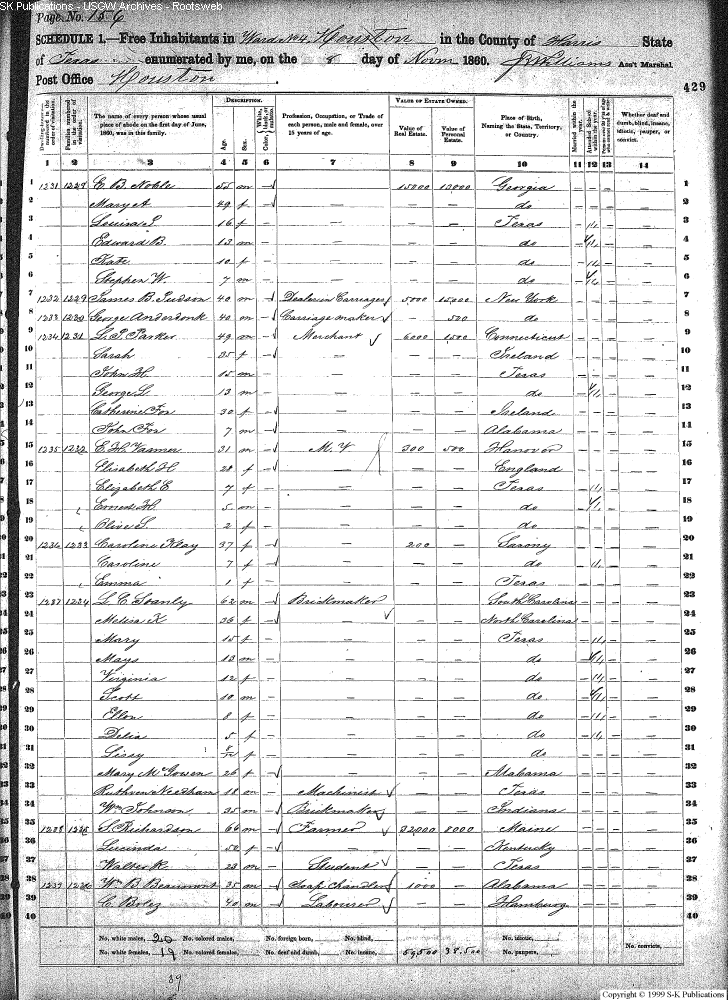 SK Publications - USGW Archives - Rootsweb
Page No. 156
SCHEDULE 1.—Free Inhabitants in Ward No 4, Houston in the County of Harris State
of Texas enumerated by me, on the 8 day of Novm 1860. Williams Ass't Marshal
Post Office Houston.
429
DESCRIPTION. VALUE OF ESTATE OWNED.
The name of every person whose usual place of abode on the first day of June, 1860, was in this family.
Age. Sex. Color,
Profession, Occupation, or Trade of each person, male and female, over 15 years of age.
Value of Real Estate. Value of Personal Estate.
Place of Birth, Naming the State, Territory, or Country.
Married within the year. Attended School within the year.
Whether deaf and dumb, blind, insane, idiotic, pauper, or convict.
1 2 3 4 5 6 7 8 9 10 11 12 13 14
1 1231 1228 E. B. Noble 55 m 15000 13000 Georgia 1
2 Mary A 49 f — — — do 2
3 Louisa P. 16 f — — — Texas 3
4 Edward B. 13 m — — — do 4
5 Kate 10 f — — — do 5
6 Stephen W. 7 m — — — do 6
7 1232 1229 James B. Judson 40 m Dealer in Carriages 5000 15000 New York 7
8 1233 1230 George Anderdonk 40 m Carriage maker — 500 do 8
9 1234 1231 L. P. Parker 49 m Merchant 6000 1500 Connecticut 9
10 Sarah 35 f — — — Ireland 10
11 John H. 15 m — — — Texas 11
12 George L. 13 m — — — do 12
13 Catherine Fox 30 f — — — Ireland 13
14 John Fox 7 m — — — Alabama 14
15 1235 1232 E. H. Varner 31 m 300 500 Hanover 15
16 Elisabeth H 28 f — — — England 16
17 Elizabeth E 7 f — — — Texas 17
18 Ernest H. 5 m — — — do 18
19 Olive S. 2 f — — — do 19
20 1236 1233 Caroline Klay 37 f — 200 — Saxony 20
21 Caroline 7 f — — — do 21
22 Emma 1 f — — — Texas 22
23 1237 1234 L. C. Stanly 62 m Brickmaker — — South Carolina 23
24 Melissa K 36 f — — North Carolina 24
25 Mary 15 f — — — Texas 25
26 Mays 13 m — — — do 26
27 Virginia 12 f — — — do 27
28 Scott 10 m — — — do 28
29 Ellon 8 f — — — do 29
30 Delia 5 f — — — do 30
31 Lissy 8/12 f — — — do 31
32 Mary McGowen 26 f — — — Alabama 32
33 Ruthven Needham 18 m Machinist — — Texas 33
34 Wm Johnson 35 m Brickmaker — — Indiana 34
35 1238 1235 S. Richardson 66 m Farmer 32000 8000 Maine 35
36 Lucinda 50 f — — — Kentucky 36
37 Walter R. 23 m Student — — Texas 37
38 1239 1236 Wm B. Beaumont 35 m Soap Chandler 1000 — Alabama 38
39 C. Bolez 40 m Labourer — — Hamburg 39
40 40
No. white males, 20 No. colored males, No. foreign born, No. blind, No. idiotic,
No. white females, 19 No. colored females, No. deaf and dumb, No. insane, 59,500 38,500 No. paupers, No. convicts,
39
Copyright © 1999 S-K Publications